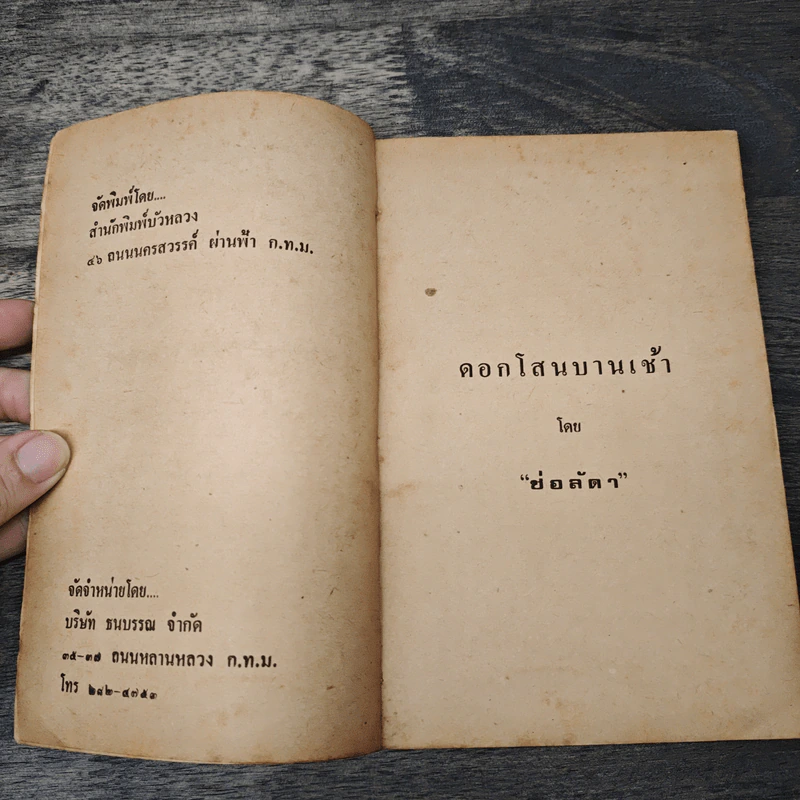 จัดพิมพ์โดย....
สำนักพิมพ์บัวหลวง
๔๖ ถนนนครสวรรค์ ผ่านฟ้า ก.ท.ม.
จัดจำหน่ายโดย....
บริษัท ธนบรรณ จำกัด
๓๕-๓๗ ถนนหลานหลวง ก.ท.ม.
โทร ๒๘๒-๔๗๕๓
ดอกโสนบานเช้า
โดย
“ช่อลัดา”